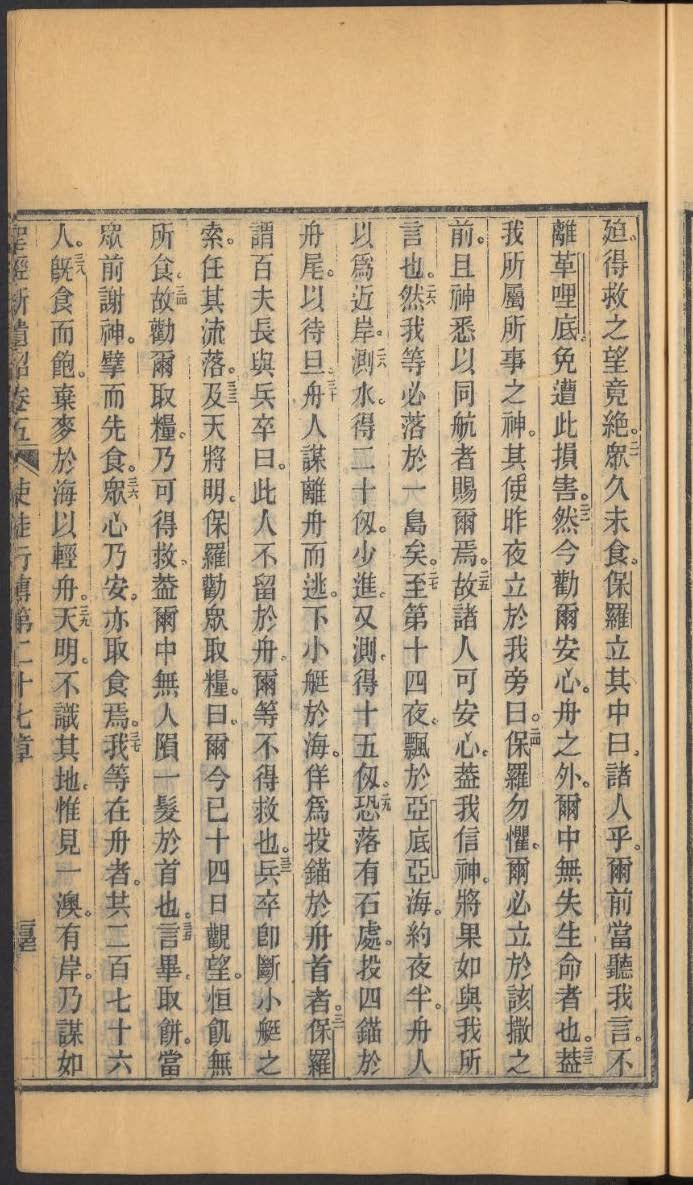 廹得救之望竟絕。二一眾久未食。保羅立其中曰。諸人乎。爾前當聽我言。不
離革哩底。免遭此損害。二二然今勸爾安心。舟之外。爾中無失生命者也。二三葢
我所屬所事之神。其使昨夜立於我旁曰。二四保羅勿懼。爾必立於該撒之
前。且神悉以同航者賜爾焉。二五故諸人可安心。葢我信神。將果如與我所
言也。二六然我等必落於一島矣。二七至第十四夜。飄於亞底亞海。約夜半。舟人
以爲近岸。二八測水。得二十伋。少進。又測。得十五伋。二九恐落有石處。投四錨於
舟尾。以待旦。三十舟人謀離舟而逃。下小艇於海。佯爲投錨於舟首者。三一保羅
謂百夫長與兵卒曰。此人不留於舟。爾等不得救也。三二兵卒卽斷小艇之
索。任其流落。三三及天將明。保羅勸眾取糧。曰。爾今已十四日觀望。恒飢無
所食。三四故勸爾取糧。乃可得救。葢爾中無人隕一髮於首也。三五言畢。取餅。當
眾前謝神。擘而先食。三六眾心乃安。亦取食焉。三七我等在舟者。共二百七十六
人。三八旣食而飽。棄麥於海以輕舟。三九天明。不識其地。惟見一澳。有岸。乃謀如
聖經新遺詔卷五 使徒行傳第二十七章